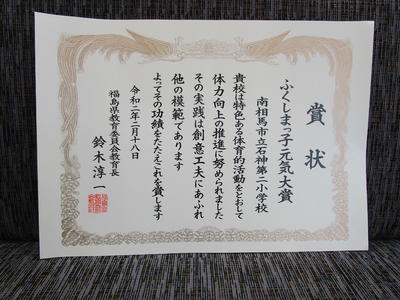 賞状
ふくしまっ子元気大賞
南相馬市立石神第二小学校
貴校は特色ある体育的活動をとおして
体力向上の推進に努められました
その実践は創意工夫にあふれ
他の模範であります
よってその功績をたたえこれを賞します
令和二年二月十八日
福島県教育委員会教育長
鈴木淳一